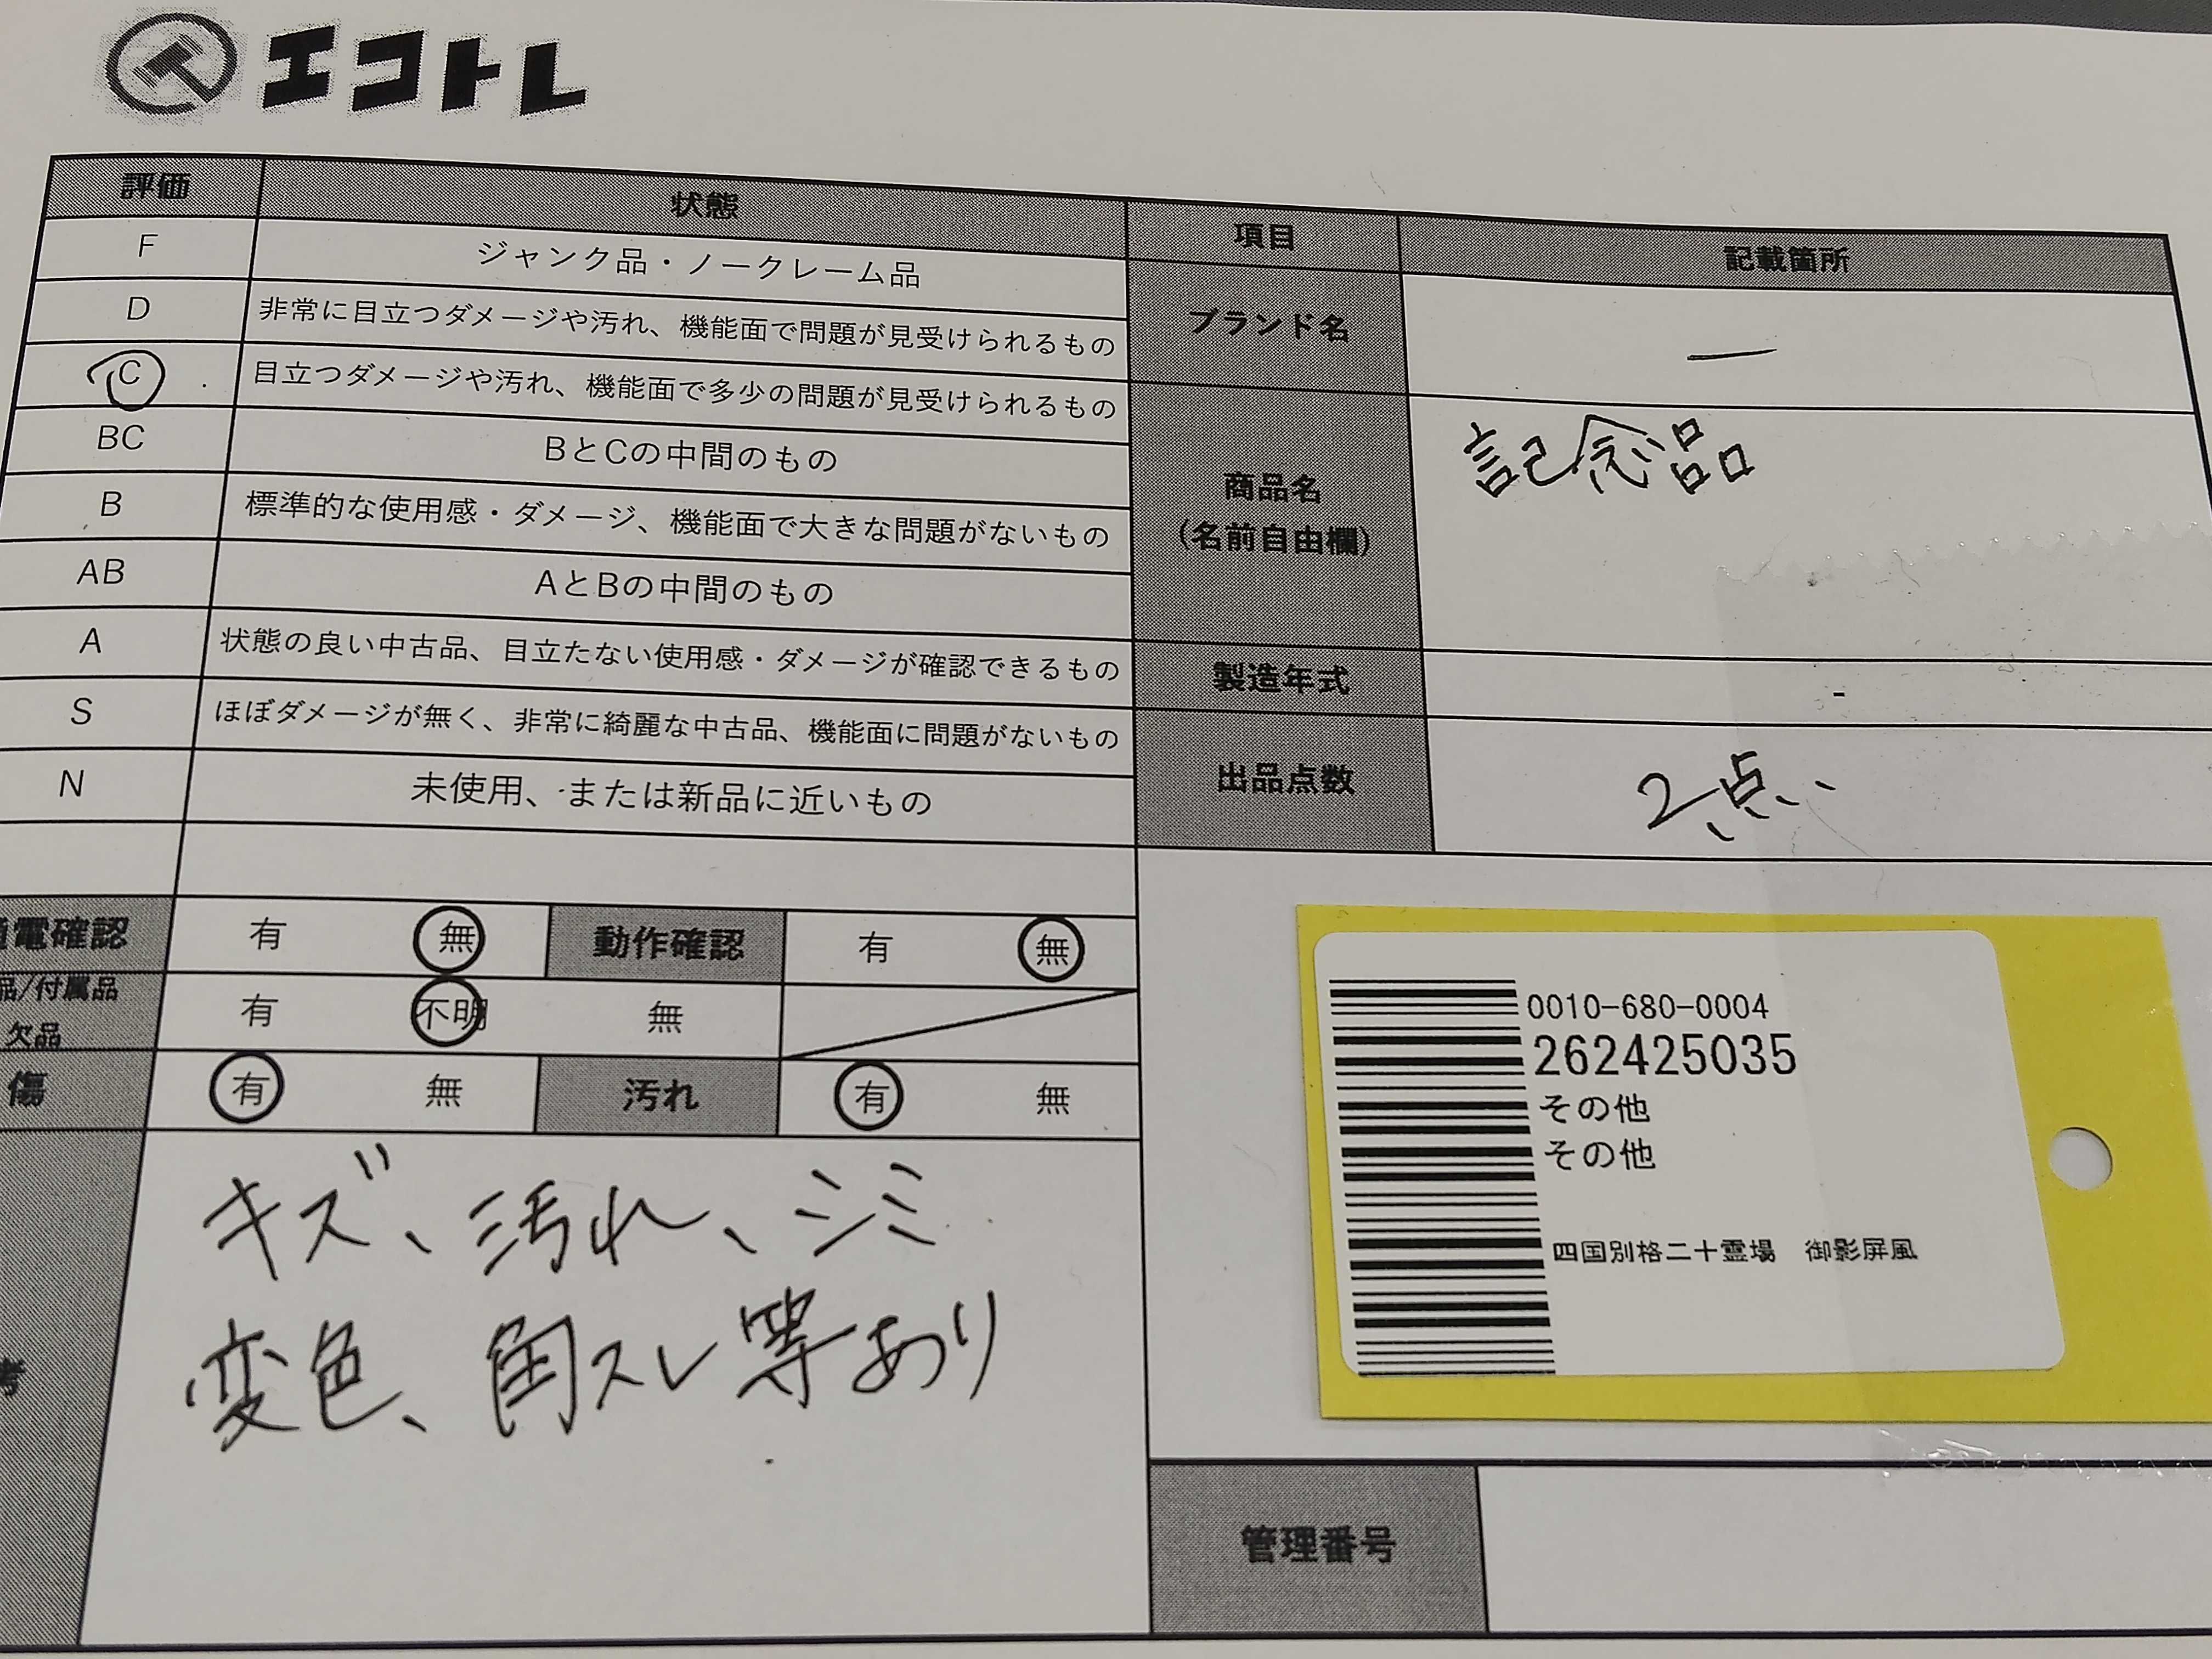 エコトレ
評価 状態
F ジャンク品・ノークレーム品
D 非常に目立つダメージや汚れ、機能面で問題が見受けられるもの
C 目立つダメージや汚れ、機能面で多少の問題が見受けられるもの
BC BとCの中間のもの
B 標準的な使用感・ダメージ、機能面で大きな問題がないもの
AB AとBの中間のもの
A 状態の良い中古品、目立たない使用感・ダメージが確認できるもの
S ほぼダメージが無く、非常に綺麗な中古品、機能面に問題がないもの
N 未使用、または新品に近いもの
電確認 有 無 動作確認 有 無
品/付属品 欠品 有 不明 無
傷 有 無 汚れ 有 無
キズ、汚れ、シミ
変色、角スレ等あり
項目 記載箇所
ブランド名 ー
商品名 記念品
(名前自由欄)
製造年式 -
出品点数 2点
0010-680-0004
262425035
その他
その他
四国別格二十霊場 御影屏風
管理番号